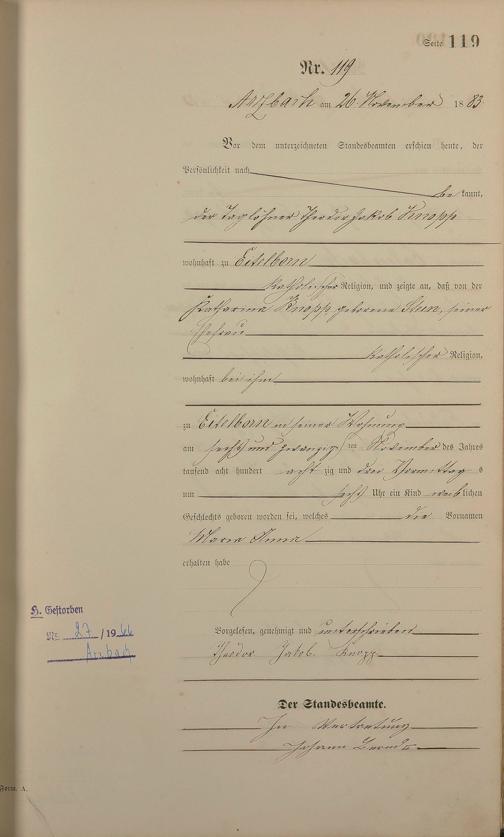 Seite 119
Nr. 119
Arzbach am 26 November 1883.
Vor dem unterzeichneten Standesbeamten erschien heute, der
Persönlichkeit nach
be kannt,
der Taglöhner Theodor Jakob Knopp
wohnhaft zu Eitelborn
katholischer Religion, und zeigte an, daß von der
Katharina Knopp geborene seiner
Ehefrau
katholischer Religion,
wohnhaft bei ihm
zu Eitelborn in seiner Wohnung
am sechs und zwanzig ten November des Jahres
tausend acht hundert acht zig und drei Vormittag s
um sechs Uhr ein Kind weiblichen
Geschlechts geboren worden sei, welches die Vornamen
Maria Anna
erhalten habe
H. Gestorben
Nr. 27/1966
Arzbach
Vorgelesen, genehmigt und unterschrieben
Theodor Jakob Knopp
Der Standesbeamte.
In Vertretung
Johann
Form. A.